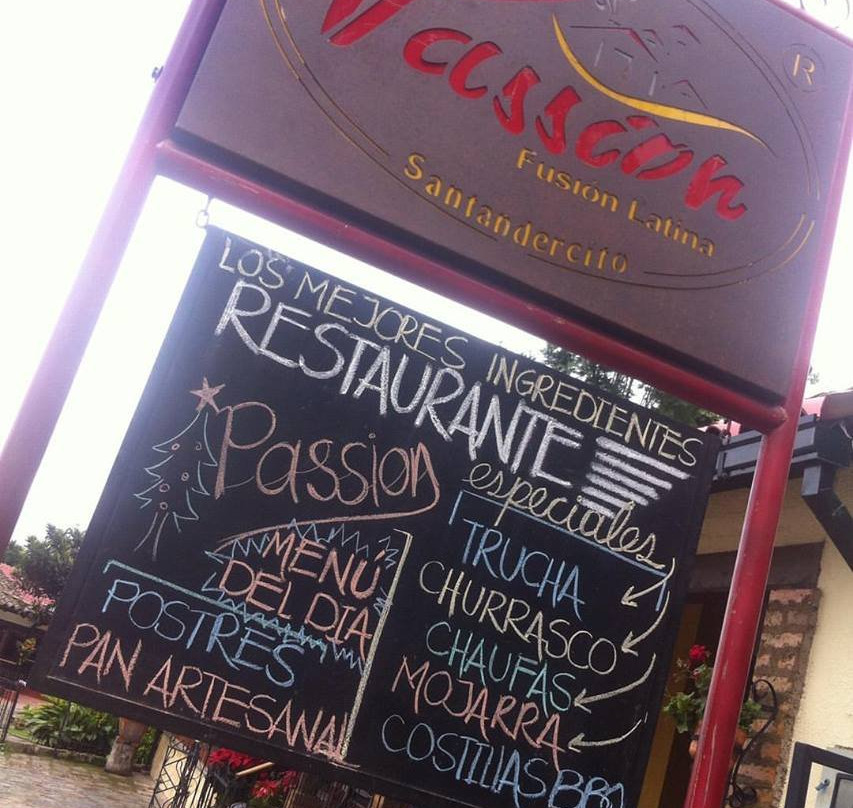 Passion
®
Fusión Latina
Santandercito
LOS MEJORES INGREDIENTES
RESTAURANTE
Passion
MENÚ
DEL DIA
POSTRES
PAN ARTESANAL
especiales
TRUCHA
CHURRASCO
CHAUFAS
MOJARRA
COSTILLAS BBQ